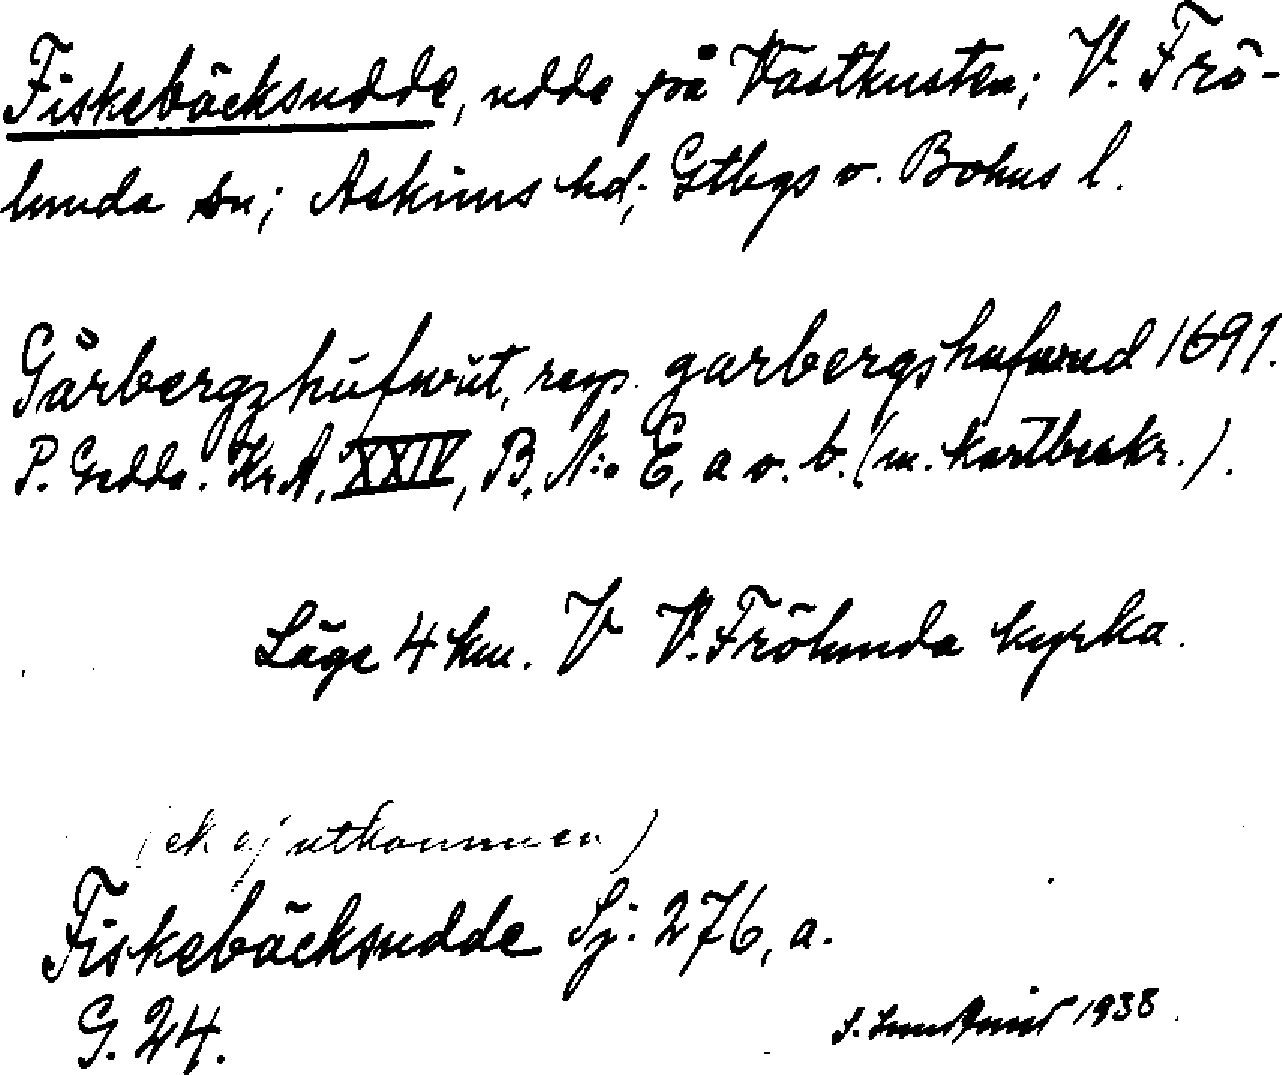 Fiskebäcksudde, udde på Västkusten; V. Frö-
lunda sn; Askims hd; Gtbgs o. Bohus l.
Gårbergzhufwut, resp. garbergshufwud 1691.
P. Gedda. Kr.A. XXIV, B. N:o E, a o. b. (m. kartbeskr.).
Läge 4 km. V V. Frölunda kyrka.
(ek ej utkommen)
Fiskebäcksudde Sj. 276, a.
G. 24.
1938